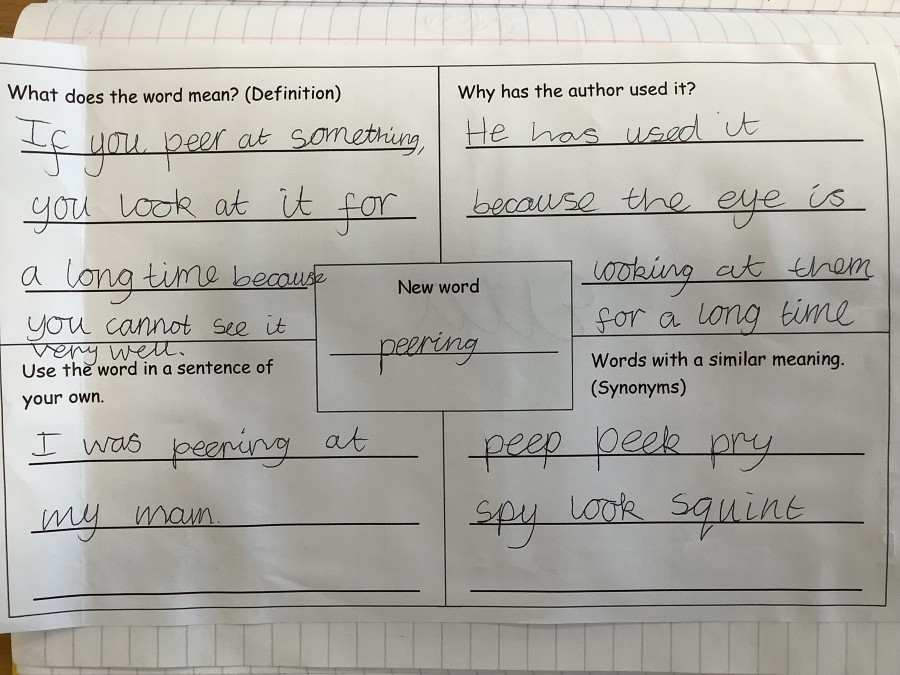 What does the word mean? (Definition)
If you peer at something,
you look at it for
a long time because
you cannot see it
very well.
Why has the author used it?
He has used it
because the eye is
looking at them
for a long time
New word
peering
Use the word in a sentence of
your own.
I was peering at
my mam.
Words with a similar meaning.
(Synonyms)
peep peek pry
spy look squint